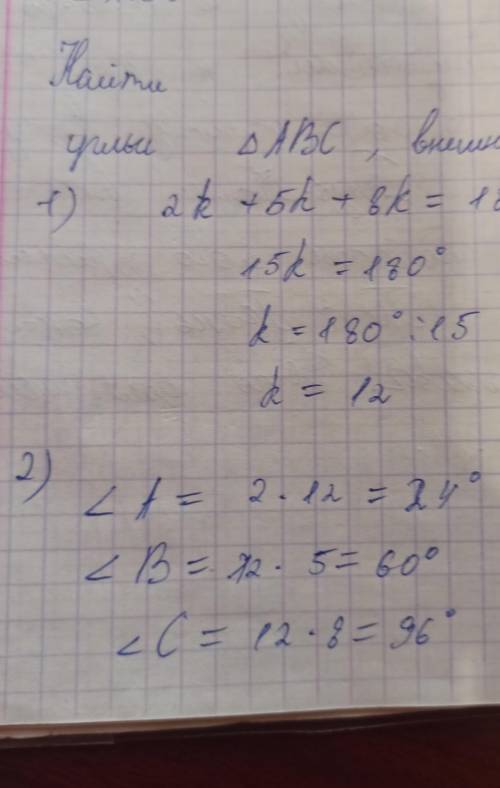 Найти
углы △ABC, внешн
1) 2k + 5k + 8k = 18
15k = 180°
k = 180° : 15
k = 12
2)
∠A = 2 · 12 = 24°
∠B = 12 · 5 = 60°
∠C = 12 · 8 = 96°